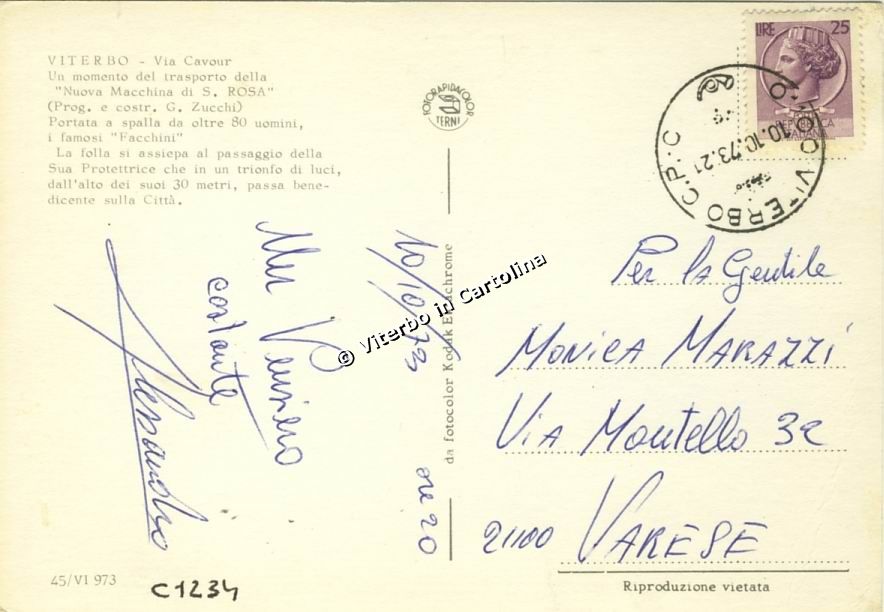 VITERBO - Via Cavour
Un momento del trasporto della
"Nuova Macchina di S. ROSA"
(Prog. e costr. G. Zucchi)
Portata a spalla da oltre 80 uomini,
i famosi "Facchini"
La folla si assiepa al passaggio della
Sua Protettrice che in un trionfo di luci,
dall'alto dei suoi 30 metri, passa bene-
dicente sulla Città.
FOTORAPIDACOLOR
TERNI
LIRE 25
REPUBBLICA
ITALIANA
VITERBO C.P.C
10.10.73.21
10/10/73
ore 20
Un Pensiero
costante
Alessandro
da fotocolor Kodak Ektachrome
© Viterbo in Cartolina
Per la Gentile
MONICA MARAZZI
Via Montello 32
21100 VARESE
45/VI 973
C1234
Riproduzione vietata